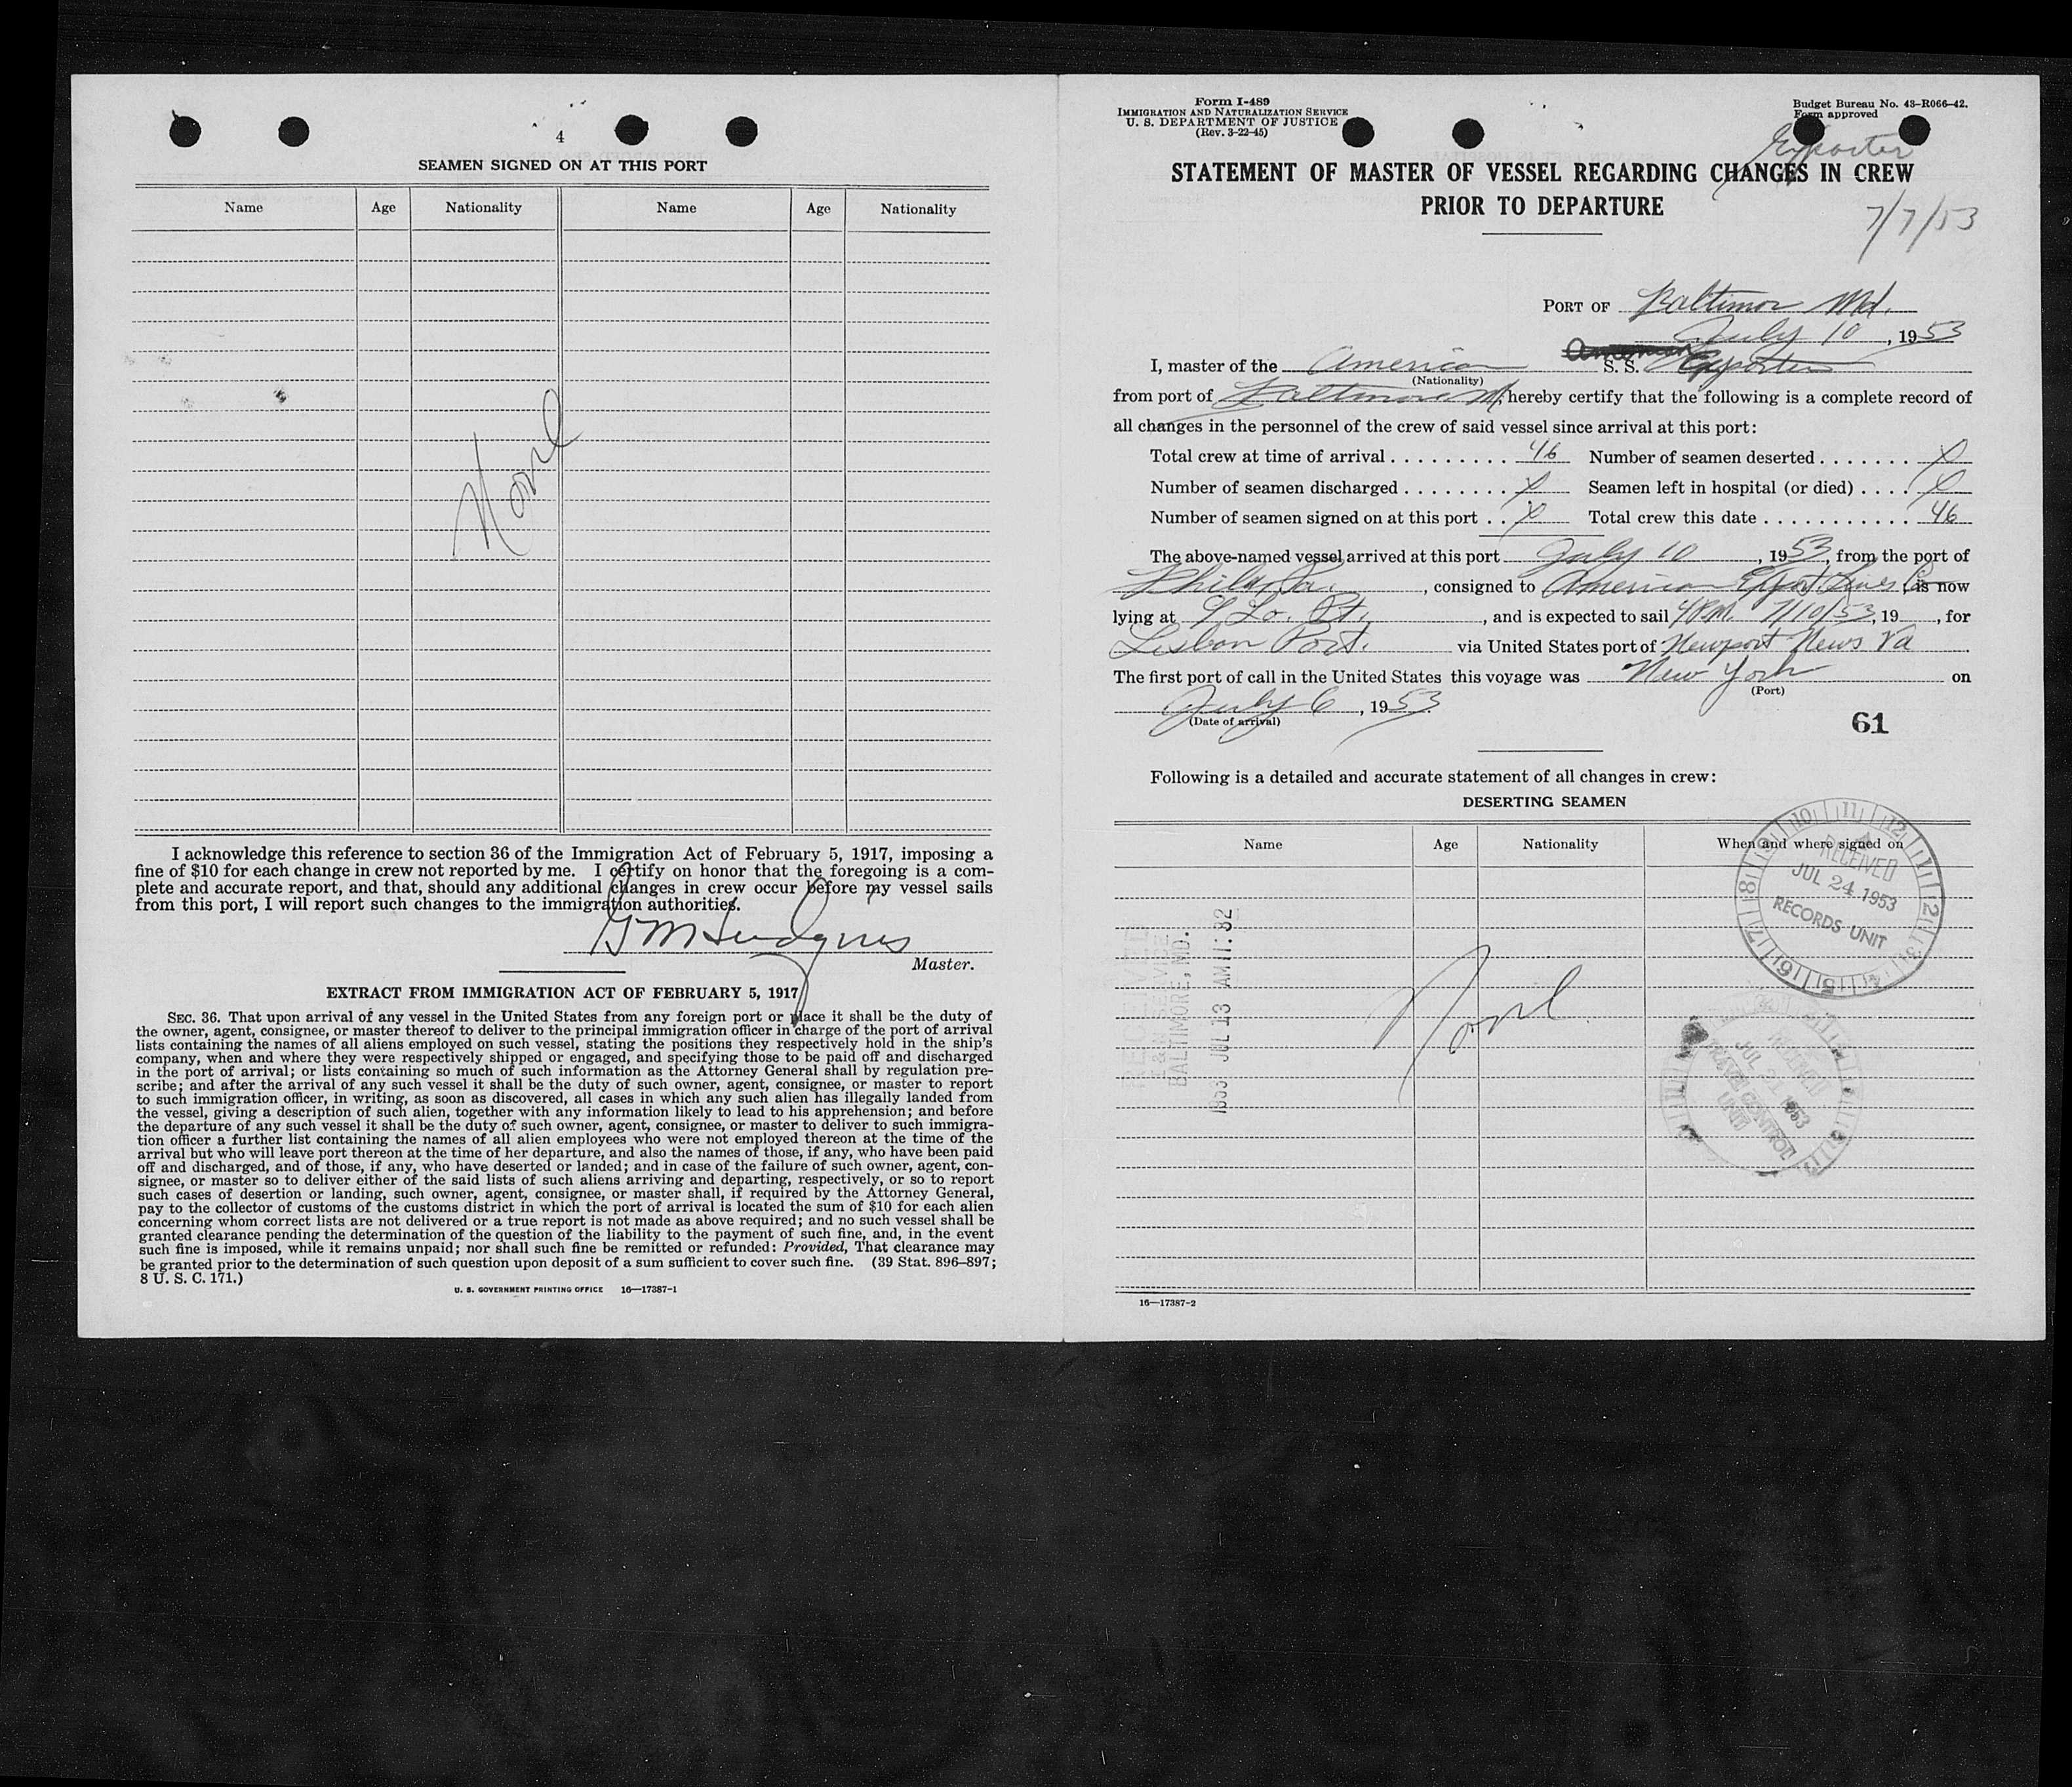 4
SEAMEN SIGNED ON AT THIS PORT
Name Age Nationality Name Age Nationality
None
I acknowledge this reference to section 36 of the Immigration Act of February 5, 1917, imposing a
fine of $10 for each change in crew not reported by me. I certify on honor that the foregoing is a com-
plete and accurate report, and that, should any additional changes in crew occur before my vessel sails
from this port, I will report such changes to the immigration authorities.
Master.
EXTRACT FROM IMMIGRATION ACT OF FEBRUARY 5, 1917
SEC. 36. That upon arrival of any vessel in the United States from any foreign port or place it shall be the duty of
the owner, agent, consignee, or master thereof to deliver to the principal immigration officer in charge of the port of arrival
lists containing the names of all aliens employed on such vessel, stating the positions they respectively hold in the ship's
company, when and where they were respectively shipped or engaged, and specifying those to be paid off and discharged
in the port of arrival; or lists containing so much of such information as the Attorney General shall by regulation pre-
scribe; and after the arrival of any such vessel it shall be the duty of such owner, agent, consignee, or master to report
to such immigration officer, in writing, as soon as discovered, all cases in which any such alien has illegally landed from
the vessel, giving a description of such alien, together with any information likely to lead to his apprehension; and before
the departure of any such vessel it shall be the duty of such owner, agent, consignee, or master to deliver to such immigra-
tion officer a further list containing the names of all alien employees who were not employed thereon at the time of the
arrival but who will leave port thereon at the time of her departure, and also the names of those, if any, who have been paid
off and discharged, and of those, if any, who have deserted or landed; and in case of the failure of such owner, agent, con-
signee, or master so to deliver either of the said lists of such aliens arriving and departing, respectively, or so to report
such cases of desertion or landing, such owner, agent, consignee, or master shall, if required by the Attorney General,
pay to the collector of customs of the customs district in which the port of arrival is located the sum of $10 for each alien
concerning whom correct lists are not delivered or a true report is not made as above required; and no such vessel shall be
granted clearance pending the determination of the question of the liability to the payment of such fine, and, in the event
such fine is imposed, while it remains unpaid; nor shall such fine be remitted or refunded: Provided, That clearance may
be granted prior to the determination of such question upon deposit of a sum sufficient to cover such fine. (39 Stat. 896–897;
8 U. S. C. 171.)
U. S. GOVERNMENT PRINTING OFFICE 16—17387-1
Form I-489
IMMIGRATION AND NATURALIZATION SERVICE
U. S. DEPARTMENT OF JUSTICE
(Rev. 3-22-45)
Budget Bureau No. 43-R066-42.
Form approved
Exporter
STATEMENT OF MASTER OF VESSEL REGARDING CHANGES IN CREW
PRIOR TO DEPARTURE
7/7/53
PORT OF Baltimore Md.
July 10, 1953
I, master of the American S. S. Exporter
(Nationality)
from port of Baltimore Md, hereby certify that the following is a complete record of
all changes in the personnel of the crew of said vessel since arrival at this port:
Total crew at time of arrival . . . . . . . . . . 46 Number of seamen deserted . . . . . . . X
Number of seamen discharged . . . . . . . . X Seamen left in hospital (or died) . . . . X
Number of seamen signed on at this port . . X Total crew this date . . . . . . . . . . . . 46
The above-named vessel arrived at this port July 10, 1953, from the port of
Phila, Pa., consigned to American Export Lines, is now
lying at Lo. Pt., and is expected to sail 4 P.M. 7/10/53, 19 , for
Lisbon Port. via United States port of Newport News Va
The first port of call in the United States this voyage was New York on
(Port)
July 6, 1953
(Date of arrival)
61
Following is a detailed and accurate statement of all changes in crew:
DESERTING SEAMEN
Name Age Nationality When and where signed on
RECEIVED
JUL 24 1953
RECORDS UNIT
BALTIMORE, MD.
1953 JUL 13 AM 11:32
None
RECEIVED
JUL 21 1953
TRAVEL CONTROL
UNIT
16—17387-2